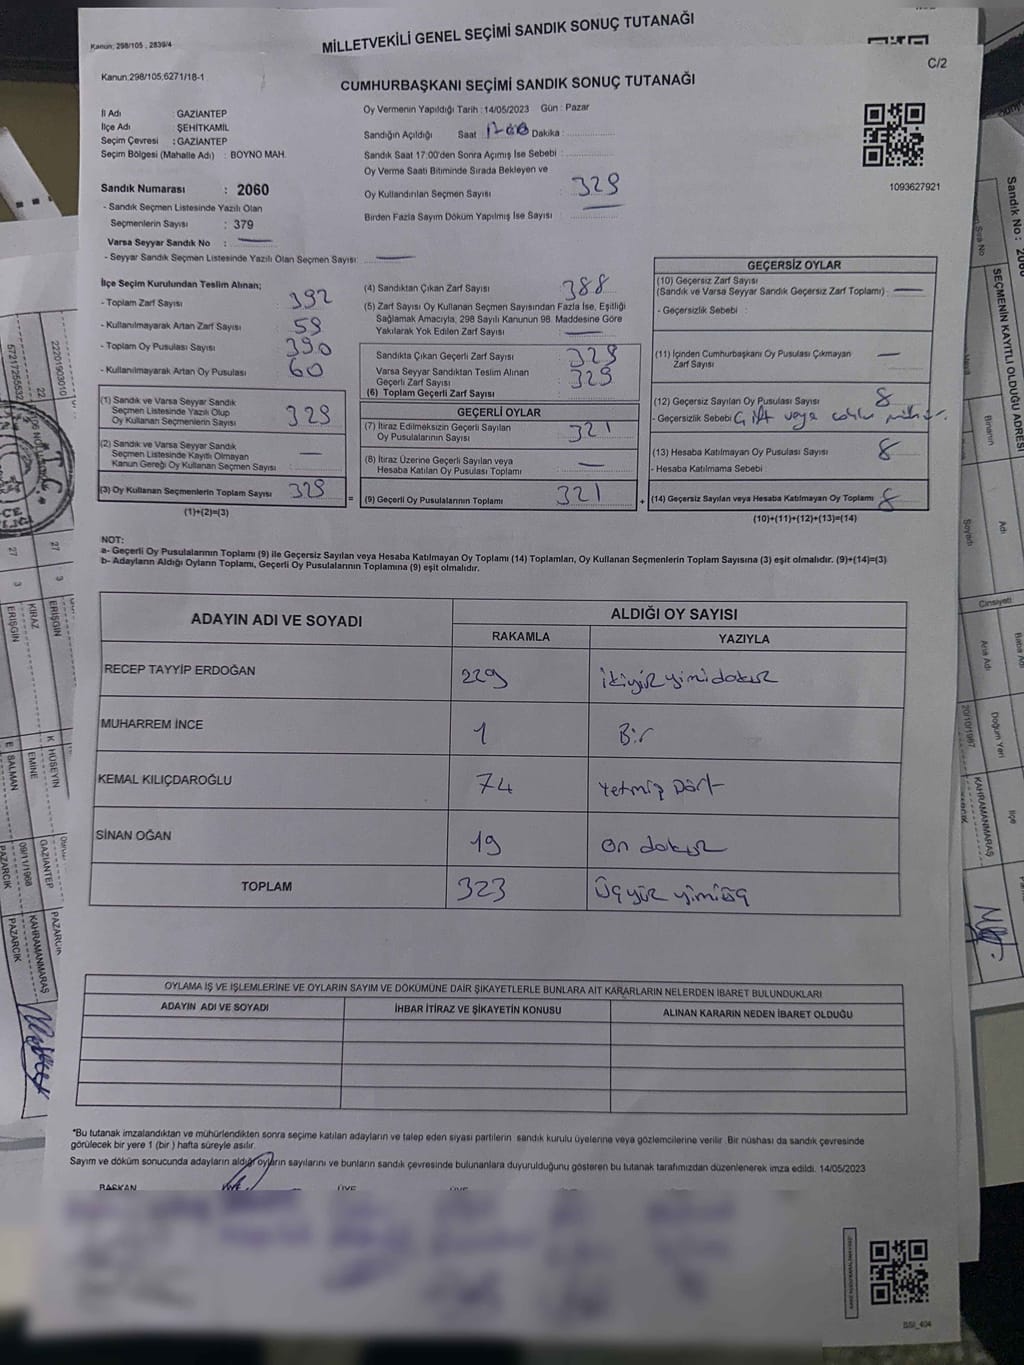 Kanun; 298/105 , 2839/4
MİLLETVEKİLİ GENEL SEÇİMİ SANDIK SONUÇ TUTANAĞI
C/2
Kanun;298/105;6271/18-1
CUMHURBAŞKANI SEÇİMİ SANDIK SONUÇ TUTANAĞI
İl Adı : GAZİANTEP
İlçe Adı : ŞEHİTKAMİL
Seçim Çevresi : GAZİANTEP
Seçim Bölgesi (Mahalle Adı) : BOYNO MAH.
Oy Vermenin Yapıldığı Tarih :14/05/2023 Gün : Pazar
Sandığın Açıldığı Saat Dakika :
Sandık Saat 17:00'den Sonra Açımış İse Sebebi :
Oy Verme Saati Bitiminde Sırada Bekleyen ve
Oy Kullandırılan Seçmen Sayısı : 329
Birden Fazla Sayım Döküm Yapılmış İse Sayısı :
1093627921
Sandık Numarası : 2060
- Sandık Seçmen Listesinde Yazılı Olan
Seçmenlerin Sayısı : 379
Varsa Seyyar Sandık No : —
- Seyyar Sandık Seçmen Listesinde Yazılı Olan Seçmen Sayısı: —
İlçe Seçim Kurulundan Teslim Alınan;
- Toplam Zarf Sayısı 392
- Kullanılmayarak Artan Zarf Sayısı 59
- Toplam Oy Pusulası Sayısı 390
- Kullanılmayarak Artan Oy Pusulası 60
(1) Sandık ve Varsa Seyyar Sandık
Seçmen Listesinde Yazılı Olup
Oy Kullanan Seçmenlerin Sayısı 329
(2) Sandık ve Varsa Seyyar Sandık
Seçmen Listesinde Kayıtlı Olmayan
Kanun Gereği Oy Kullanan Seçmen Sayısı —
(3) Oy Kullanan Seçmenlerin Toplam Sayısı 329
(1)+(2)=(3)
(4) Sandıktan Çıkan Zarf Sayısı 388
(5) Zarf Sayısı Oy Kullanan Seçmen Sayısından Fazla İse, Eşitliği
Sağlamak Amacıyla, 298 Sayılı Kanunun 98. Maddesine Göre
Yakılarak Yok Edilen Zarf Sayısı —
Sandıkta Çıkan Geçerli Zarf Sayısı 329
Varsa Seyyar Sandıktan Teslim Alınan
Geçerli Zarf Sayısı 329
(6) Toplam Geçerli Zarf Sayısı
GEÇERLİ OYLAR
(7) İtiraz Edilmeksizin Geçerli Sayılan
Oy Pusulalarının Sayısı 321
(8) İtiraz Üzerine Geçerli Sayılan veya
Hesaba Katılan Oy Pusulası Toplamı —
= (9) Geçerli Oy Pusulalarının Toplamı 321 +
GEÇERSİZ OYLAR
(10) Geçersiz Zarf Sayısı
(Sandık ve Varsa Seyyar Sandık Geçersiz Zarf Toplamı) —
- Geçersizlik Sebebi :
(11) İçinden Cumhurbaşkanı Oy Pusulası Çıkmayan
Zarf Sayısı —
(12) Geçersiz Sayılan Oy Pusulası Sayısı 8
- Geçersizlik Sebebi Çift veya
(13) Hesaba Katılmayan Oy Pusulası Sayısı 8
- Hesaba Katılmama Sebebi
(14) Geçersiz Sayılan veya Hesaba Katılmayan Oy Toplamı 8
(10)+(11)+(12)+(13)=(14)
NOT:
a- Geçerli Oy Pusulalarının Toplamı (9) ile Geçersiz Sayılan veya Hesaba Katılmayan Oy Toplamı (14) Toplamları, Oy Kullanan Seçmenlerin Toplam Sayısına (3) eşit olmalıdır. (9)+(14)=(3)
b- Adayların Aldığı Oyların Toplamı, Geçerli Oy Pusulalarının Toplamına (9) eşit olmalıdır.
ADAYIN ADI VE SOYADI ALDIĞI OY SAYISI
RAKAMLA YAZIYLA
RECEP TAYYİP ERDOĞAN 229 ikiyüz yirmidokuz
MUHARREM İNCE 1 Bir
KEMAL KILIÇDAROĞLU 74 Yetmiş Dört
SİNAN OĞAN 19 on dokuz
TOPLAM 323 Üçyüz yirmiüç
OYLAMA İŞ VE İŞLEMLERİNE VE OYLARIN SAYIM VE DÖKÜMÜNE DAİR ŞİKAYETLERLE BUNLARA AİT KARARLARIN NELERDEN İBARET BULUNDUKLARI
ADAYIN ADI VE SOYADI İHBAR İTİRAZ VE ŞİKAYETİN KONUSU ALINAN KARARIN NEDEN İBARET OLDUĞU
*Bu tutanak imzalandıktan ve mühürlendikten sonra seçime katılan adayların ve talep eden siyasi partilerin sandık kurulu üyelerine veya gözlemcilerine verilir. Bir nüshası da sandık çevresinde
görülecek bir yere 1 (bir ) hafta süreyle asılır.
Sayım ve döküm sonucunda adayların aldığı oyların sayılarını ve bunların sandık çevresinde bulunanlara duyurulduğunu gösteren bu tutanak tarafımızdan düzenlenerek imza edildi. 14/05/2023
BAŞKAN ÜYE ÜYE
BSI_404
57217255532
22201903010
22
27
3
ERİŞGİN
KİRAZ
E
SALMAN
EMİNE
09/11/1968
PAZARCIK
KAHRAMANMARAŞ
PAZARCIK
27
3
ERİŞGİN
K
HÜSEYİN
GAZİANTEP
PAZARCIK
Sandık No :
SEÇMENİN KAYITLI OLDUĞU ADRESİ
Sıra No
Binanın
Adı
Soyadı
Cinsiyeti
Ana Adı
Baba Adı
20/10/1967
Doğum Yeri
KAHRAMANMARAŞ
İlçe